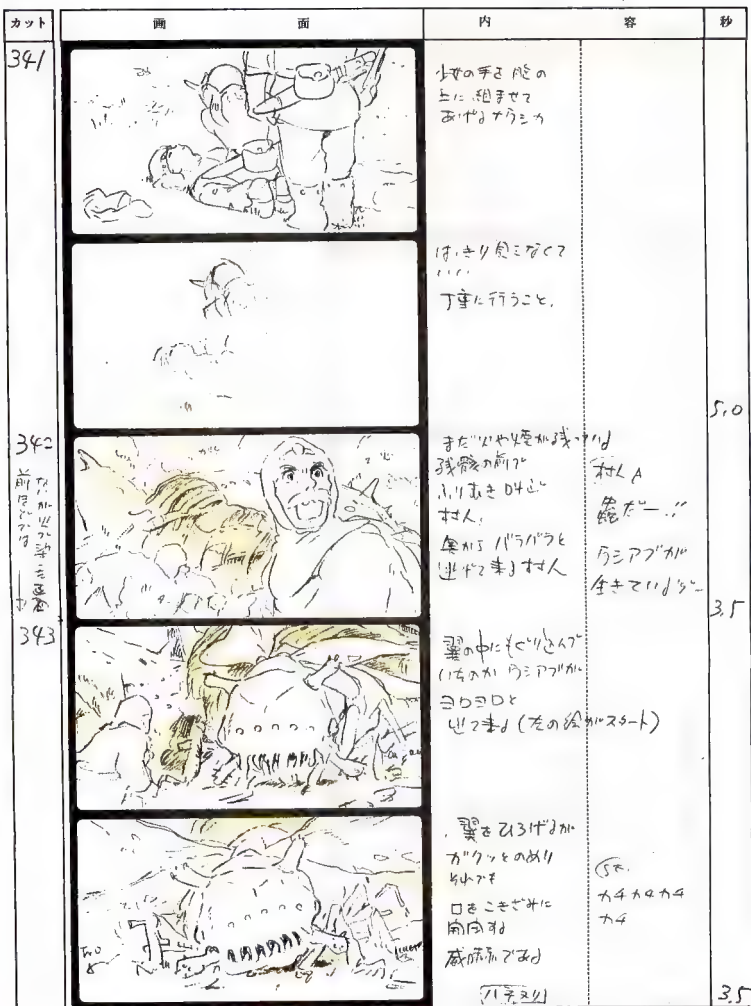 カット 画面 内容 秒
341
少女の手を胸の
上に、組ませて
あげるナウシカ
はっきり見えなくて
いい
丁重に行うこと。
5.0
342
まだ火や煙が残っている
残骸の前で
ふりむき叫ぶ
村人。
奥から バラバラと
逃げて来る村人
村人A
蟲だー!!
ウシアブが
生きているゾー
3.5
343
翼の中にもぐりこんで
いたのか ウシアブが
ヨロヨロと
出て来る (左の絵がスタート)
翼をひろげるが
ガクッとのめり
それでも
口をこきざみに
開閉する
威嚇である
SE.
カチカチカチ
カチ
3.5